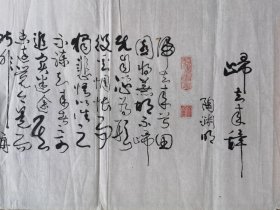 歸去來辭
陶淵明
歸去來兮田
園將蕪胡不歸
既自以心為形
役奚惆悵而
獨悲悟已往之
不諫知來者之可
追實迷途其
未遠覺今是而
昨非舟